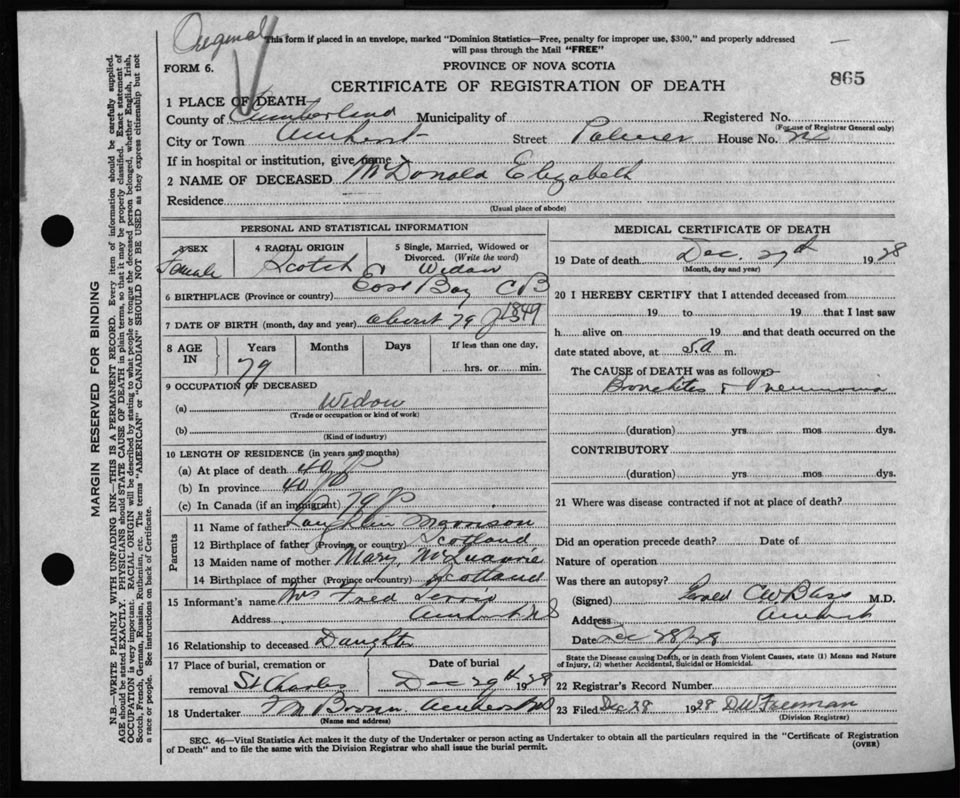 Original
This form if placed in an envelope, marked "Dominion Statistics—Free, penalty for improper use, $300," and properly addressed
will pass through the Mail "FREE"
FORM 6.
PROVINCE OF NOVA SCOTIA
CERTIFICATE OF REGISTRATION OF DEATH
865
1 PLACE OF DEATH
County of Cumberland Municipality of Registered No.
(For use of Registrar General only)
City or Town Amherst Street Palmer House No.
If in hospital or institution, give name
2 NAME OF DECEASED McDonald Elizabeth
Residence
(Usual place of abode)
PERSONAL AND STATISTICAL INFORMATION
3 SEX Female
4 RACIAL ORIGIN Scotch
5 Single, Married, Widowed or Divorced. (Write the word) Widow
6 BIRTHPLACE (Province or country) East Bay CB
7 DATE OF BIRTH (month, day and year) about 79 1849
8 AGE IN Years Months Days If less than one day,
79 hrs. or min.
9 OCCUPATION OF DECEASED
(a) Widow
(Trade or occupation or kind of work)
(b)
(Kind of industry)
10 LENGTH OF RESIDENCE (in years and months)
(a) At place of death 40
(b) In province 40
(c) In Canada (if an immigrant) 79
Parents
11 Name of father Laughlin Morrison
12 Birthplace of father (Province or country) Scotland
13 Maiden name of mother Mary McQuarrie
14 Birthplace of mother (Province or country) Scotland
15 Informant's name Mrs Fred
Address Amherst NS
16 Relationship to deceased Daughter
17 Place of burial, cremation or removal St Charles
Date of burial Dec 29th 1928
18 Undertaker Amherst NS
(Name and address)
MEDICAL CERTIFICATE OF DEATH
19 DATE OF DEATH Dec. 27th 1928
(Month, day and year)
20 I HEREBY CERTIFY that I attended deceased from
19 to 19 that I last saw
h alive on 19 and that death occurred on the
date stated above, at 5.a m.
The CAUSE of DEATH was as follows
Bronchites & Pneumonia
(duration) yrs mos dys.
CONTRIBUTORY
(duration) yrs mos dys.
21 Where was disease contracted if not at place of death?
Did an operation precede death? Date of
Nature of operation
Was there an autopsy?
(Signed) M.D.
Address Amherst
Date Dec 28/28
State the Disease causing Death, or in death from Violent Causes, state (1) Means and Nature
of Injury, (2) whether Accidental, Suicidal or Homicidal.
22 Registrar's Record Number
23 Filed Dec 28 1928 D.W. Freeman
(Division Registrar)
SEC. 46—Vital Statistics Act makes it the duty of the Undertaker or person acting as Undertaker to obtain all the particulars required in the "Certificate of Registration
of Death" and to file the same with the Division Registrar who shall issue the burial permit.
(OVER)
MARGIN RESERVED FOR BINDING
N.B.—WRITE PLAINLY WITH UNFADING INK—THIS IS A PERMANENT RECORD. Every item of information should be carefully supplied.
AGE should be stated EXACTLY. PHYSICIANS should STATE CAUSE OF DEATH in plain terms, so that it may be properly classified. Exact statement of
OCCUPATION is very important. RACIAL ORIGIN will be described by stating to what people or tongue the deceased person belonged, whether English, Irish,
Scotch, French, German, Russian, Ruthenian, etc. The terms "AMERICAN" or "CANADIAN" SHOULD NOT BE USED as they express citizenship but not
a race or people. See instructions on back of Certificate.